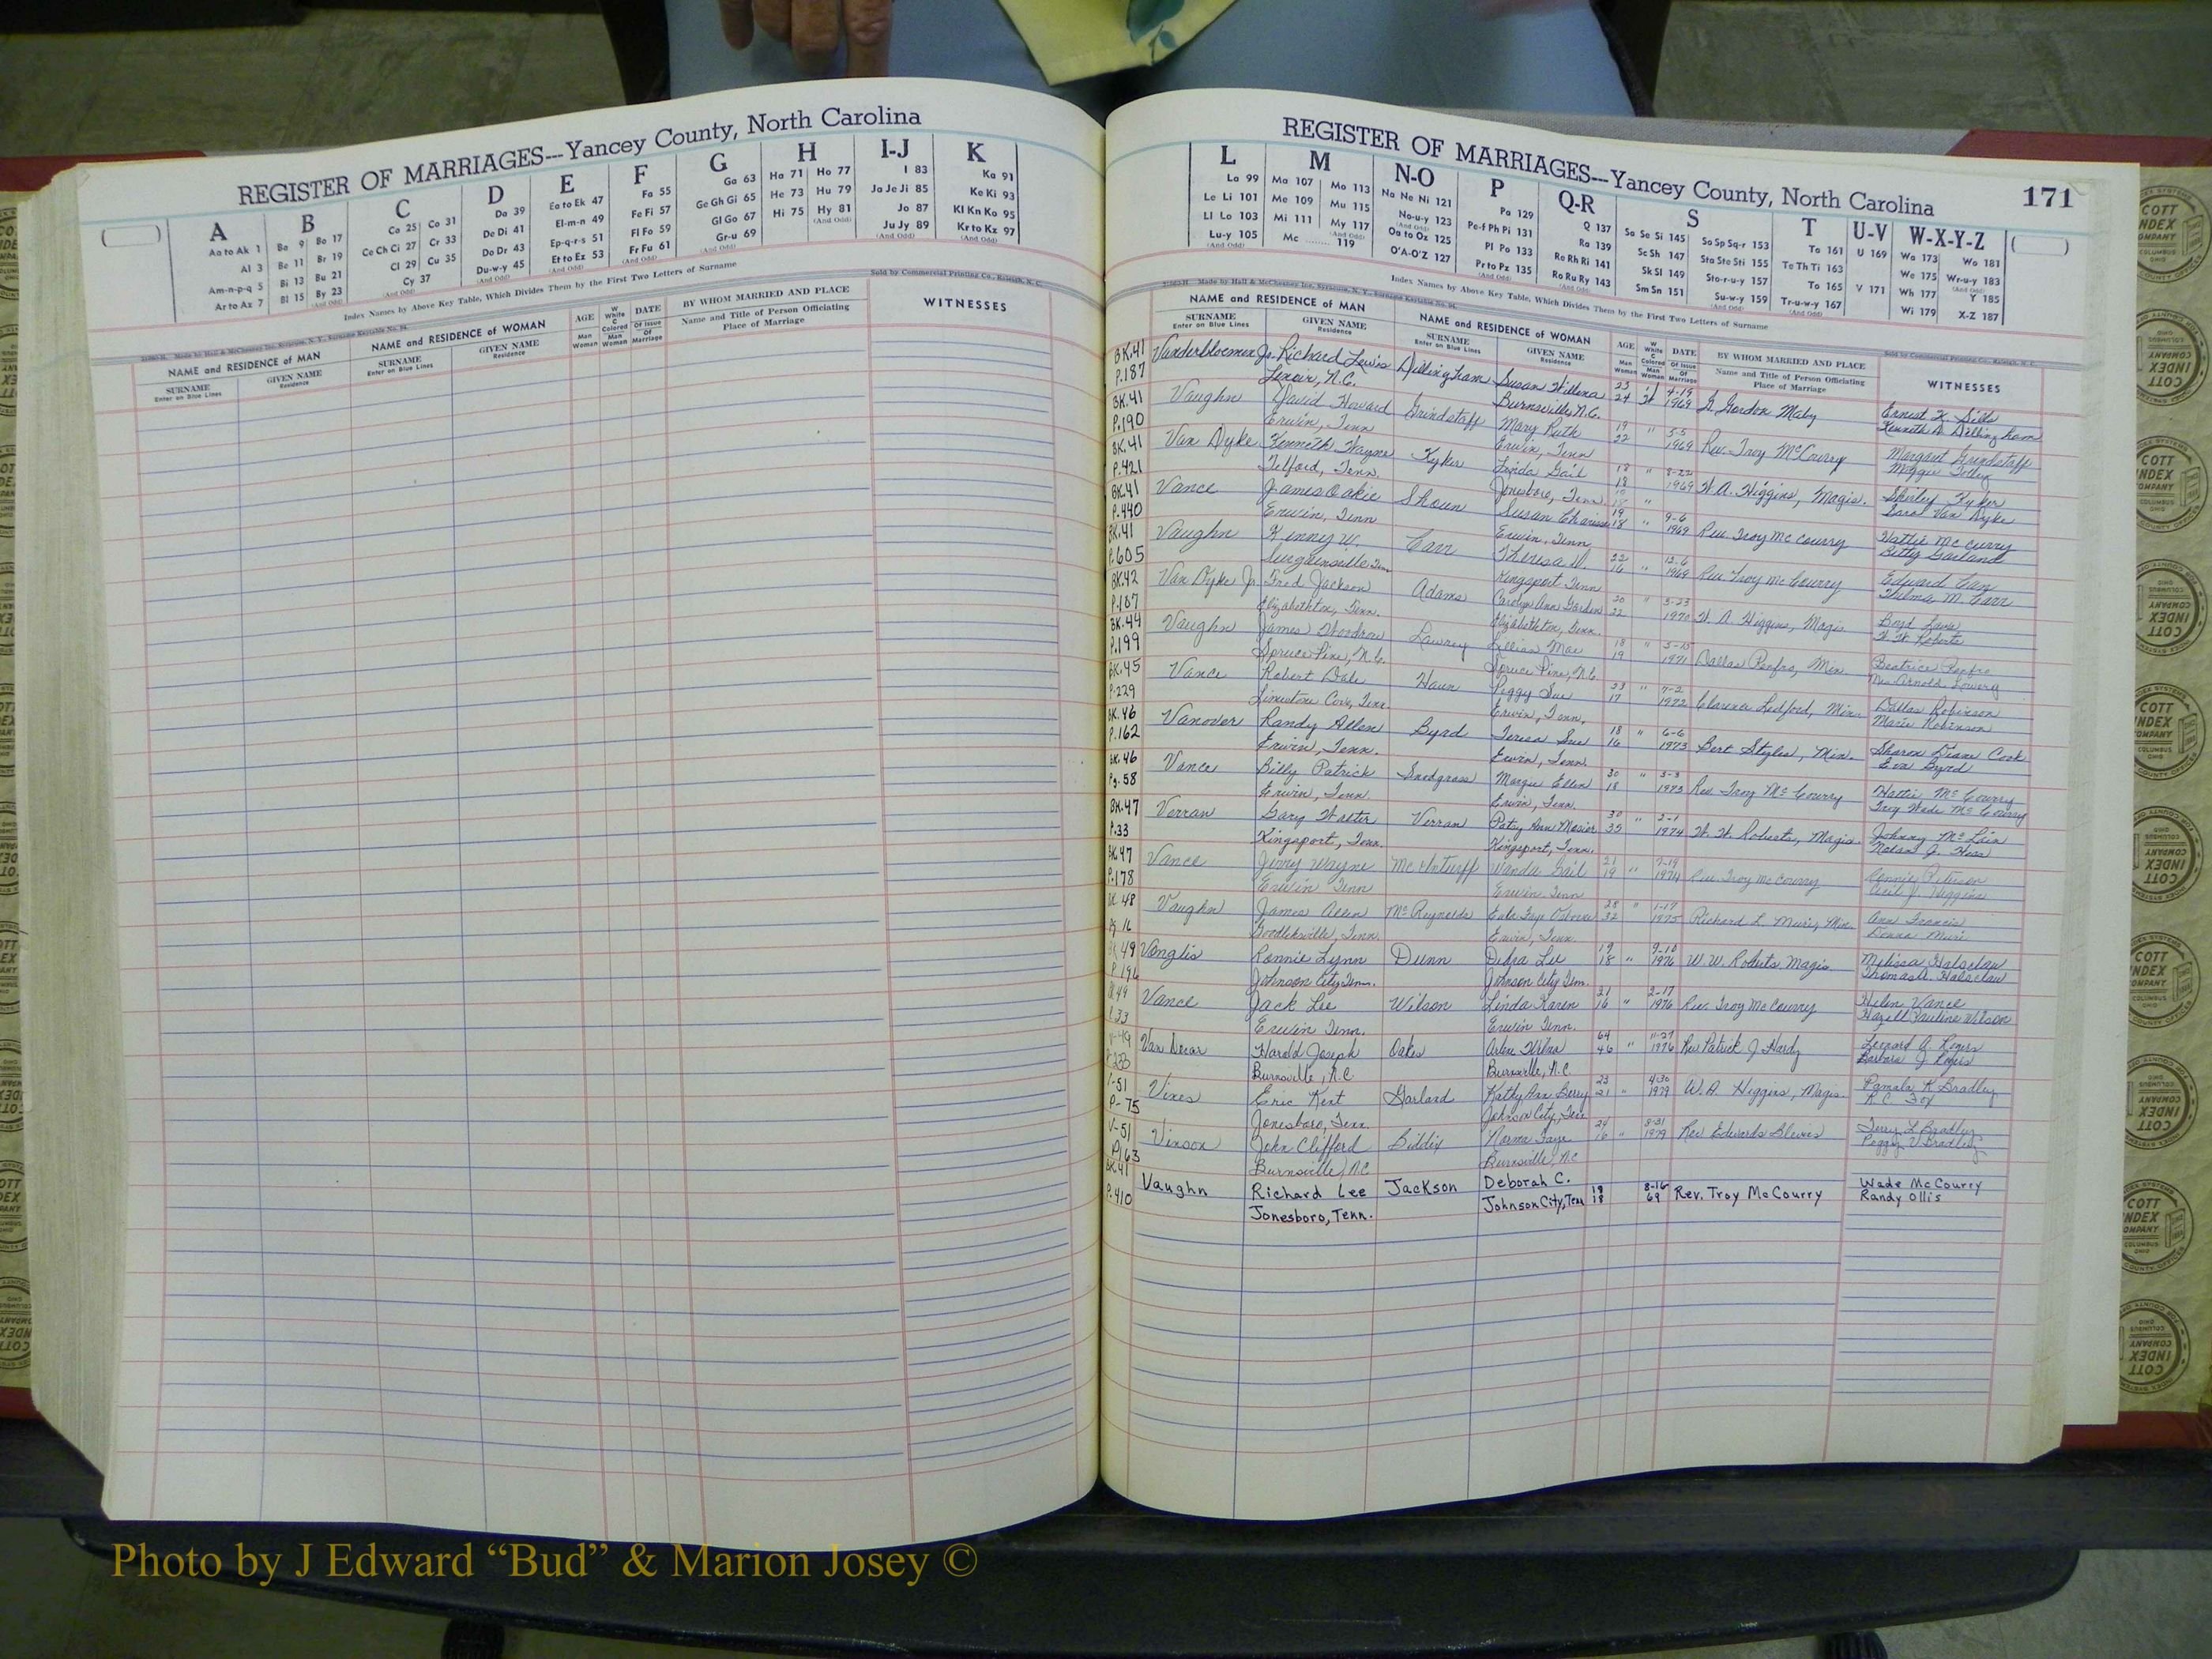 REGISTER OF MARRIAGES---Yancey County, North Carolina
A B C D E F G H I-J K
Aa to Ak 1 Ba 9 Bo 17 Ca 25 Co 31 Da 39 Ea to Ek 47 Fa 55 Ga 63 Ha 71 Ho 77 I 83 Ka 91
Al 3 Be 11 Br 19 Ce Ch Ci 27 Cr 33 De Di 41 El-m-n 49 Fe Fi 57 Ge Gh Gi 65 He 73 Hu 79 Ja Je Ji 85 Ke Ki 93
Am-n-p-q 5 Bi 13 Bu 21 Cl 29 Cu 35 Do Dr 43 Ep-q-r-s 51 Fl Fo 59 Gl Go 67 Hi 75 Hy 81 Jo 87 Kl Kn Ko 95
Ar to Az 7 Bl 15 By 23 Cy 37 Du-w-y 45 Et to Ez 53 Fr Fu 61 Gr-u 69 (And Odd) Ju Jy 89 Kr to Kz 97
Index Names by Above Key Table, Which Divides Them by the First Two Letters of Surname
Sold by Commercial Printing Co., Raleigh, N. C.
NAME and RESIDENCE of MAN NAME and RESIDENCE of WOMAN AGE DATE BY WHOM MARRIED AND PLACE WITNESSES
SURNAME Enter on Blue Lines GIVEN NAME Residence SURNAME Enter on Blue Lines GIVEN NAME Residence Man Woman W White C Colored Man Woman Of Issue Of Marriage Name and Title of Person Officiating Place of Marriage
REGISTER OF MARRIAGES---Yancey County, North Carolina 171
L M N-O P Q-R S T U-V W-X-Y-Z
La 99 Ma 107 Mo 113 Na Ne Ni 121 Pa 129 Q 137 Sa Se Si 145 So Sp Sq-r 153 Ta 161 U 169 Wa 173 Wo 181
Le Li 101 Me 109 Mu 115 No-u-y 123 Pe-f Ph Pi 131 Ra 139 Sc Sh 147 Sta Ste Sti 155 Te Th Ti 163 We 175 Wr-u-y 183
Ll Lo 103 Mi 111 My 117 Oa to Oz 125 Pl Po 133 Re Rh Ri 141 Sk Sl 149 Sto-r-u-y 157 To 165 V 171 Wh 177 Y 185
Lu-y 105 Mc 119 O'A-O'Z 127 Pr to Pz 135 Ro Ru Ry 143 Sm Sn 151 Su-w-y 159 Tr-u-w-y 167 Wi 179 X-Z 187
Index Names by Above Key Table, Which Divides Them by the First Two Letters of Surname
NAME and RESIDENCE of MAN NAME and RESIDENCE of WOMAN AGE DATE BY WHOM MARRIED AND PLACE WITNESSES
SURNAME Enter on Blue Lines GIVEN NAME Residence SURNAME Enter on Blue Lines GIVEN NAME Residence Man Woman W White C Colored Man Woman Of Issue Of Marriage Name and Title of Person Officiating Place of Marriage
BK.41 Vanderbloemen Jr. Richard Lewis Dillingham Susan Willena 23 4-19 G. Gordon Ernest
P.187 Lenoir, N.C. Burnsville, N.C. 24 W 1969 Kenneth D. Dillingham
BK.41 Vaughn David Howard Grindstaff Mary Ruth 19 " 5-5 Rev. Troy McCourry Margaret Grindstaff
P.190 Erwin, Tenn Erwin, Tenn 22 1969 Maggie
BK.41 Van Dyke Kenneth Wayne Kyker Linda Gail 18 " W.A. Higgins, Magis. Shirley Kyker
P.421 Telford, Tenn. Jonesboro, Tenn. 18 1969 Van Dyke
BK.41 Vance James Oakie Shoun Susan 19 " 9-6 Rev. Troy McCourry Hattie McCurry
P.440 Erwin, Tenn Erwin, Tenn 18 1969 Betty Garland
BK.41 Vaughn Kenny W. Carr Theresa 22 " 12-6 Rev. Troy McCourry Edward Carr
P.605 Kingsport Tenn 16 1969 Thelma M. Carr
BK.42 Van Dyke Jr. Fred Jackson Adams Carolyn Ann 20 " 3-23 W. A. Higgins, Magis
P.187 Elizabethton, Tenn. Elizabethton, Tenn. 22 1970 W. W. Roberts
BK.44 Vaughn James Woodrow Lowrey Lillian Mae 18 " 5-15 Dallas Renfro, Min. Beatrice Renfro
P.199 Spruce Pine, N.C. Spruce Pine, N.C. 19 1971 Mrs. Arnold Lowery
BK.45 Vance Robert Dale Haun Peggy Sue 23 " 7-2 Clarence Ledford, Min. Dallas Robinson
P-229 Limestone Cove, Tenn. Erwin, Tenn. 17 1972 Marie Robinson
BK.46 Vanover Randy Allen Byrd Teresa Sue 18 " 6-6 Bert Styles, Min. Sharon Diane Cook
P.162 Erwin, Tenn. Erwin, Tenn. 16 1973 Byrd
BK.46 Vance Billy Patrick Snodgrass Margie Ellen 30 " 3-3 Rev. Troy McCourry Hattie McCourry
Pg.58 Erwin, Tenn. Erwin, Tenn. 18 1973 Troy Wade McCourry
BK.47 Verran Gary Walter Verran Patsy Ann 30 " 2-1 W. W. Roberts, Magis. Johnny McLain
P.33 Kingsport, Tenn. Kingsport, Tenn. 35 1974 Nelson J. Hess
BK.47 Vance Jerry Wayne McInturff Wanda Gail 21 " 7-19 Rev. Troy McCourry Connie Peterson
P.178 Erwin Tenn Erwin Tenn 19 1974 Cecil J. Higgins
BK.48 Vaughn James Allen McReynolds Eula Faye Osborne 28 " 1-17 Richard L. Muri, Min. Ann Francis
Pg 16 Goodlettsville, Tenn. Erwin, Tenn. 32 1975 Donna Muri
BK 49 Vonglis Ronnie Lynn Dunn Debra Lee 19 " 9-10 W.W. Roberts Magis. Melissa Halsclaw
P 196 Johnson City Tenn. Johnson City Tenn. 18 1976 Thomas A. Halsclaw
Vance Jack Lee Wilson Linda Karen 21 " 2-17 Rev. Troy McCourry Helen Vance
Erwin Tenn. Erwin Tenn. 16 1976 Hazell Pauline Wilson
Harold Joseph Oakes Arlene 64 " 11-27 Rev Patrick J Hardy Leonard A. Rogers
Burnsville, N.C Burnsville, N.C 46 1976 Barbara J. Rogers
V-51 Vines Eric Kent Garland Kathy Ann Berry 23 " 4-30 W.A. Higgins, Magis. Pamala K Bradley
P-75 Jonesboro, Tenn. Johnson City, Tenn 21 1979 R C Fox
V-51 Vinson John Clifford Biddix Norma Faye 24 " 8-31 Rev Edwards Blevins Terry L Bradley
P163 Burnsville, N.C Burnsville, NC 16 1979 Peggy V Bradley
BK41 Vaughn Richard Lee Jackson Deborah C. 19 8-16 Rev. Troy McCourry Wade McCourry
P.410 Jonesboro, Tenn. Johnson City, Tenn 18 69 Randy Ollis
Photo by J Edward “Bud” & Marion Josey ©